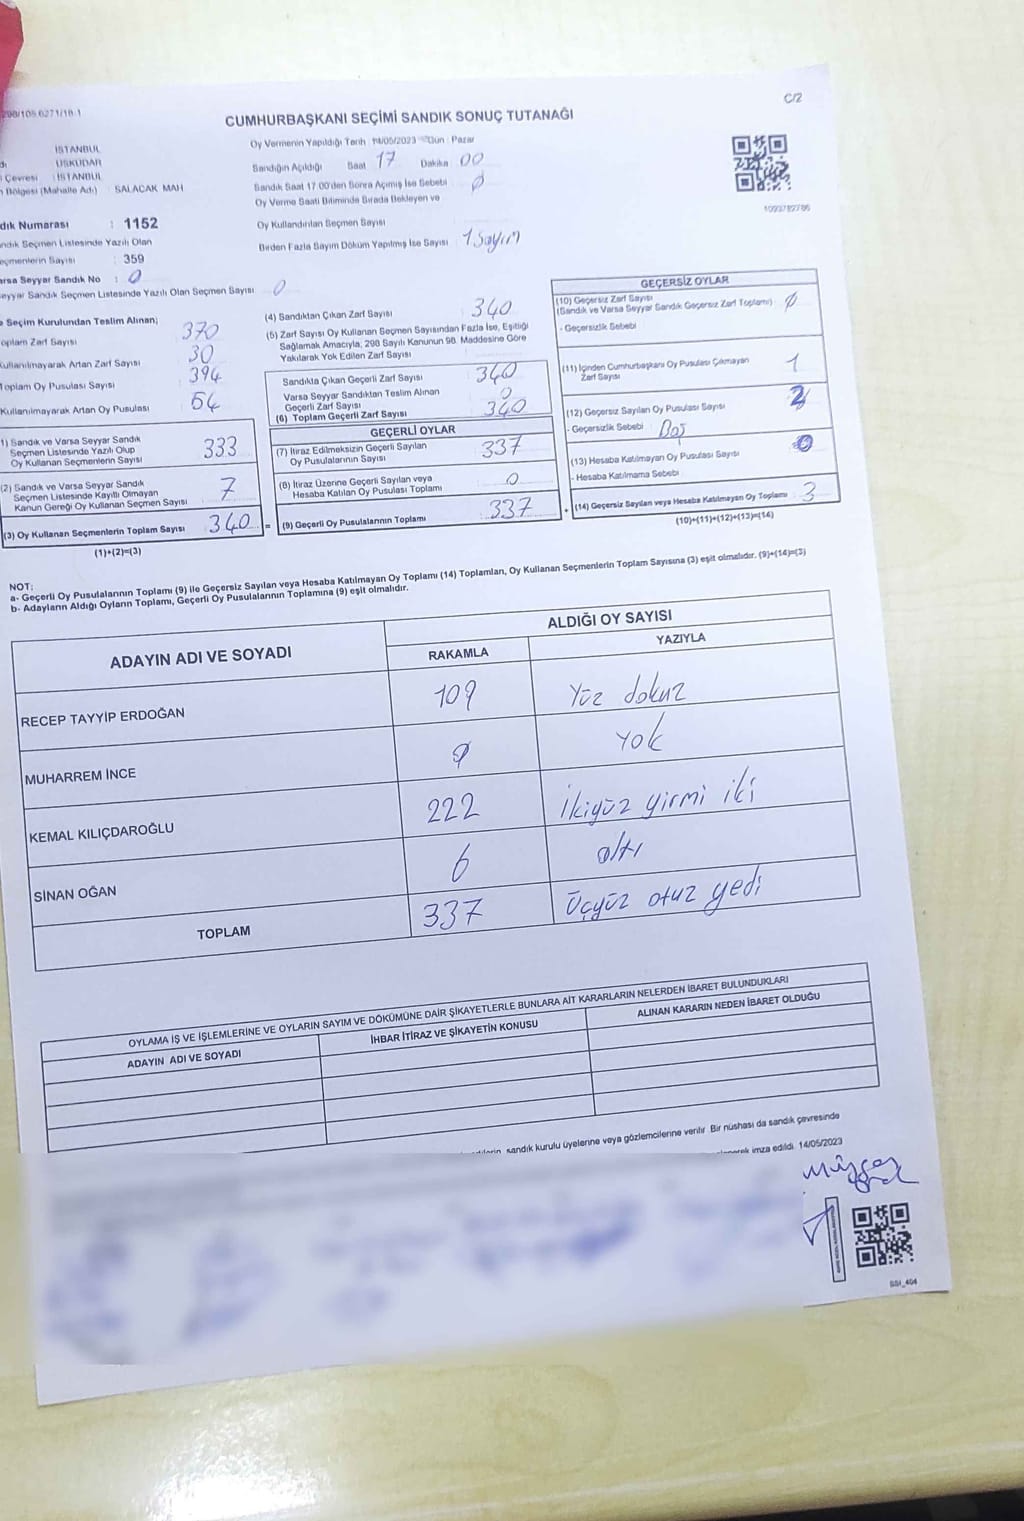 C/2
CUMHURBAŞKANI SEÇİMİ SANDIK SONUÇ TUTANAĞI
İSTANBUL
ÜSKÜDAR
Çevresi : İSTANBUL
Bölgesi (Mahalle Adı) : SALACAK MAH
Oy Vermenin Yapıldığı Tarih : 14/05/2023 Gün : Pazar
Sandığın Açıldığı Saat 17 Dakika 00
Sandık Saat 17 00'den Sonra Açımış İse Sebebi 0
Oy Verme Saati Bitiminde Sırada Bekleyen ve
Oy Kullandırılan Seçmen Sayısı
Birden Fazla Sayım Döküm Yapılmış İse Sayısı : 1 Sayım
1093782786
Numarası : 1152
Seçmen Listesinde Yazılı Olan
Sayısı : 359
Seyyar Sandık No : 0
Sandık Seçmen Listesinde Yazılı Olan Seçmen Sayısı 0
Seçim Kurulundan Teslim Alınan;
Zarf Sayısı 370
Kullanılmayarak Artan Zarf Sayısı 30
Toplam Oy Pusulası Sayısı 394
Kullanılmayarak Artan Oy Pusulası 54
(1) Sandık ve Varsa Seyyar Sandık
Seçmen Listesinde Yazılı Olup
Oy Kullanan Seçmenlerin Sayısı 333
(2) Sandık ve Varsa Seyyar Sandık
Seçmen Listesinde Kayıtlı Olmayan
Kanun Gereği Oy Kullanan Seçmen Sayısı 7
(3) Oy Kullanan Seçmenlerin Toplam Sayısı 340 =
(1)+(2)=(3)
(4) Sandıktan Çıkan Zarf Sayısı 340
(5) Zarf Sayısı Oy Kullanan Seçmen Sayısından Fazla İse, Eşitliği
Sağlamak Amacıyla, 298 Sayılı Kanunun 98. Maddesine Göre
Yakılarak Yok Edilen Zarf Sayısı
Sandıkta Çıkan Geçerli Zarf Sayısı 340
Varsa Seyyar Sandıktan Teslim Alınan
Geçerli Zarf Sayısı 0
(6) Toplam Geçerli Zarf Sayısı 340
GEÇERLİ OYLAR
(7) İtiraz Edilmeksizin Geçerli Sayılan
Oy Pusulalarının Sayısı 337
(8) İtiraz Üzerine Geçerli Sayılan veya
Hesaba Katılan Oy Pusulası Toplamı 0
(9) Geçerli Oy Pusulalarının Toplamı 337 +
GEÇERSİZ OYLAR
(10) Geçersiz Zarf Sayısı
(Sandık ve Varsa Seyyar Sandık Geçersiz Zarf Toplamı) 0
- Geçersizlik Sebebi
(11) İçinden Cumhurbaşkanı Oy Pusulası Çıkmayan
Zarf Sayısı 1
(12) Geçersiz Sayılan Oy Pusulası Sayısı 2
- Geçersizlik Sebebi Boş
(13) Hesaba Katılmayan Oy Pusulası Sayısı 0
- Hesaba Katılmama Sebebi
(14) Geçersiz Sayılan veya Hesaba Katılmayan Oy Toplamı 3
(10)+(11)+(12)+(13)=(14)
NOT:
a- Geçerli Oy Pusulalarının Toplamı (9) ile Geçersiz Sayılan veya Hesaba Katılmayan Oy Toplamı (14) Toplamları, Oy Kullanan Seçmenlerin Toplam Sayısına (3) eşit olmalıdır. (9)+(14)=(3)
b- Adayların Aldığı Oyların Toplamı, Geçerli Oy Pusulalarının Toplamına (9) eşit olmalıdır.
ADAYIN ADI VE SOYADI
ALDIĞI OY SAYISI
RAKAMLA YAZIYLA
RECEP TAYYİP ERDOĞAN 109 Yüz dokuz
MUHARREM İNCE 0 Yok
KEMAL KILIÇDAROĞLU 222 İkiyüz yirmi iki
SİNAN OĞAN 6 altı
TOPLAM 337 Üçyüz otuz yedi
OYLAMA İŞ VE İŞLEMLERİNE VE OYLARIN SAYIM VE DÖKÜMÜNE DAİR ŞİKAYETLERLE BUNLARA AİT KARARLARIN NELERDEN İBARET BULUNDUKLARI
ADAYIN ADI VE SOYADI İHBAR İTİRAZ VE ŞİKAYETİN KONUSU ALINAN KARARIN NEDEN İBARET OLDUĞU
sandık kurulu üyelerine veya gözlemcilerine verilir. Bir nüshası da sandık çevresinde
imza edildi. 14/05/2023
SSI_404